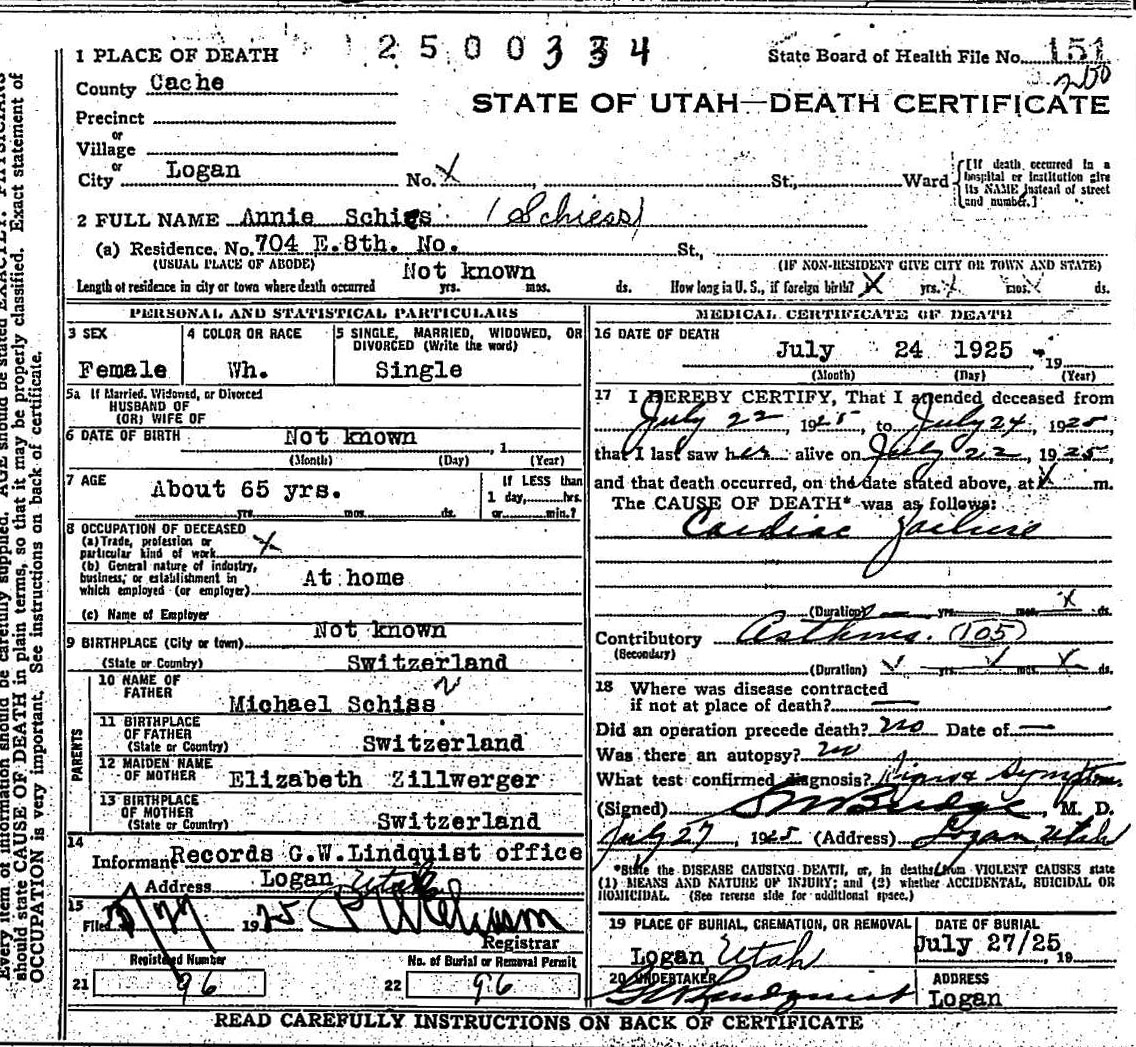 2500334
1 PLACE OF DEATH
State Board of Health File No. 151
200
County Cache
STATE OF UTAH—DEATH CERTIFICATE
Precinct
or
Village
or
City Logan No. X St., Ward
[If death occurred in a hospital or institution give its NAME instead of street and number.]
2 FULL NAME Annie Schiss (Schiess)
(a) Residence. No. 704 E.8th. No. St.,
(USUAL PLACE OF ABODE) (IF NON-RESIDENT GIVE CITY OR TOWN AND STATE)
Not known
Length of residence in city or town where death occurred yrs. mos. ds. How long in U. S., if foreign birth? X yrs. X mos. X ds.
PERSONAL AND STATISTICAL PARTICULARS
3 SEX
Female
4 COLOR OR RACE
Wh.
5 SINGLE, MARRIED, WIDOWED, OR
DIVORCED (Write the word)
Single
5a If Married, Widowed, or Divorced
HUSBAND OF
(OR) WIFE OF
6 DATE OF BIRTH Not known , 1
(Month) (Day) (Year)
7 AGE
About 65 yrs.
yrs. mos. ds.
If LESS than
1 day, hrs.
or min.?
8 OCCUPATION OF DECEASED
(a) Trade, profession or
particular kind of work X
(b) General nature of industry,
business, or establishment in
which employed (or employer) At home
(c) Name of Employer
9 BIRTHPLACE (City or town) Not known
(State or Country) Switzerland
PARENTS
10 NAME OF
FATHER
Michael Schiss
11 BIRTHPLACE
OF FATHER
(State or Country) Switzerland
12 MAIDEN NAME
OF MOTHER Elizabeth Zillwerger
13 BIRTHPLACE
OF MOTHER
(State or Country) Switzerland
14
Informant Records G.W.Lindquist office
Address Logan Utah
15
Filed 1925
Registrar
Registered Number
21 96
No. of Burial or Removal Permit
22 96
MEDICAL CERTIFICATE OF DEATH
16 DATE OF DEATH
July 24 1925 , 19
(Month) (Day) (Year)
17 I HEREBY CERTIFY, That I attended deceased from
July 22 1925, to July 24, 1925,
that I last saw her alive on July 22, 1925,
and that death occurred, on the date stated above, at X m.
The CAUSE OF DEATH* was as follows:
Cardiac Failure
(Duration) yrs. mos. X ds.
Contributory Asthma. (105)
(Secondary)
(Duration) yrs. mos. X ds.
18 Where was disease contracted
if not at place of death? —
Did an operation precede death? no Date of —
Was there an autopsy? no
What test confirmed diagnosis? Symptoms.
(Signed) Budge, M. D.
July 27, 1925 (Address) Logan Utah
*State the DISEASE CAUSING DEATH, or, in deaths from VIOLENT CAUSES state
(1) MEANS AND NATURE OF INJURY; and (2) whether ACCIDENTAL, SUICIDAL OR
HOMICIDAL. (See reverse side for additional space.)
19 PLACE OF BURIAL, CREMATION, OR REMOVAL
Logan Utah
DATE OF BURIAL
July 27/25 , 19
20 UNDERTAKER
G W Lindquist
ADDRESS
Logan
READ CAREFULLY INSTRUCTIONS ON BACK OF CERTIFICATE
Every item of information should be carefully supplied. AGE should be stated EXACTLY. PHYSICIANS
should state CAUSE OF DEATH in plain terms, so that it may be properly classified. Exact statement of
OCCUPATION is very important. See instructions on back of certificate.